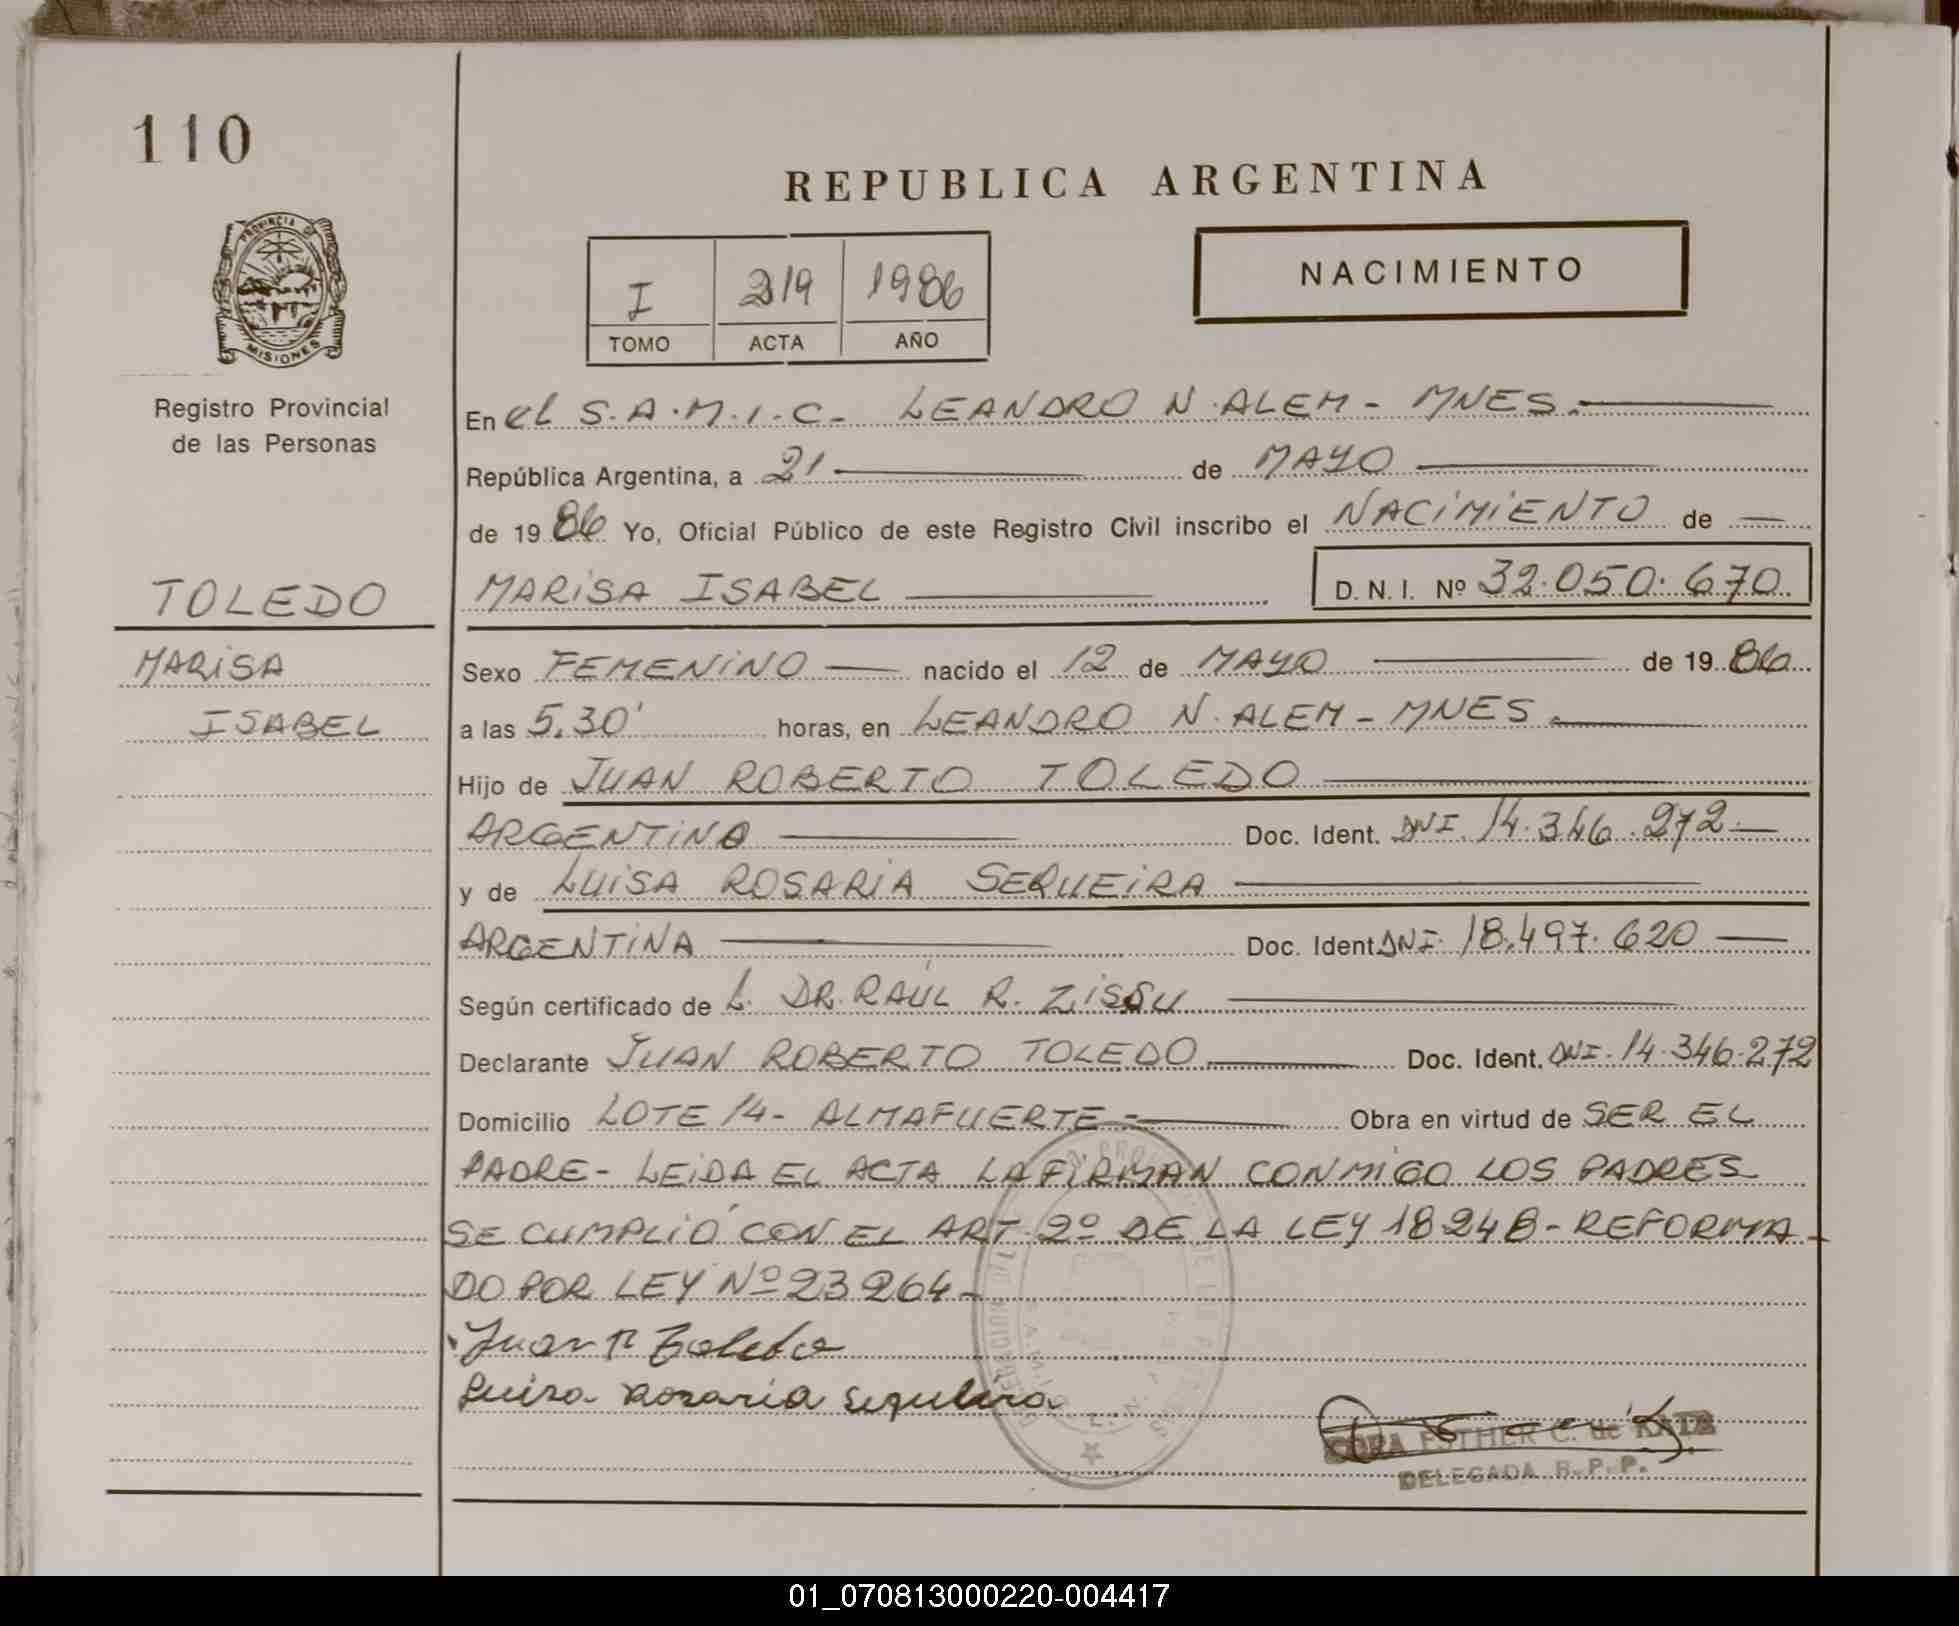 110
REPUBLICA ARGENTINA
PROVINCIA DE
MISIONES
I 219 1986
TOMO ACTA AÑO
NACIMIENTO
Registro Provincial
de las Personas
En el S.A.M.I.C- LEANDRO N. ALEM - MNES.
República Argentina, a 21 de MAYO
de 1986 Yo, Oficial Público de este Registro Civil inscribo el NACIMIENTO de
TOLEDO
MARISA ISABEL D. N. I. Nº 32.050.670
MARISA
ISABEL
Sexo FEMENINO nacido el 12 de MAYO de 1986
a las 5.30' horas, en LEANDRO N. ALEM - MNES.
Hijo de JUAN ROBERTO TOLEDO
ARGENTINO Doc. Ident. DNI. 14.346.272
y de LUISA ROSARIA SEQUEIRA
ARGENTINA Doc. Ident. DNI. 18.497.620
Según certificado de L. DR. RAÚL R. ZISSU
Declarante JUAN ROBERTO TOLEDO Doc. Ident. DNI. 14.346.272
Domicilio LOTE 14- ALMAFUERTE - Obra en virtud de SER EL
PADRE - LEIDA EL ACTA LA FIRMAN CONMIGO LOS PADRES
SE CUMPLIÓ CON EL ART. 2º DE LA LEY 18248 - REFORMA-
DO POR LEY Nº 23264 -
Juan R Toledo
Luisa Rosaria Sequeira
ESTHER C. de
DELEGADA R.P.P.
01_070813000220-004417